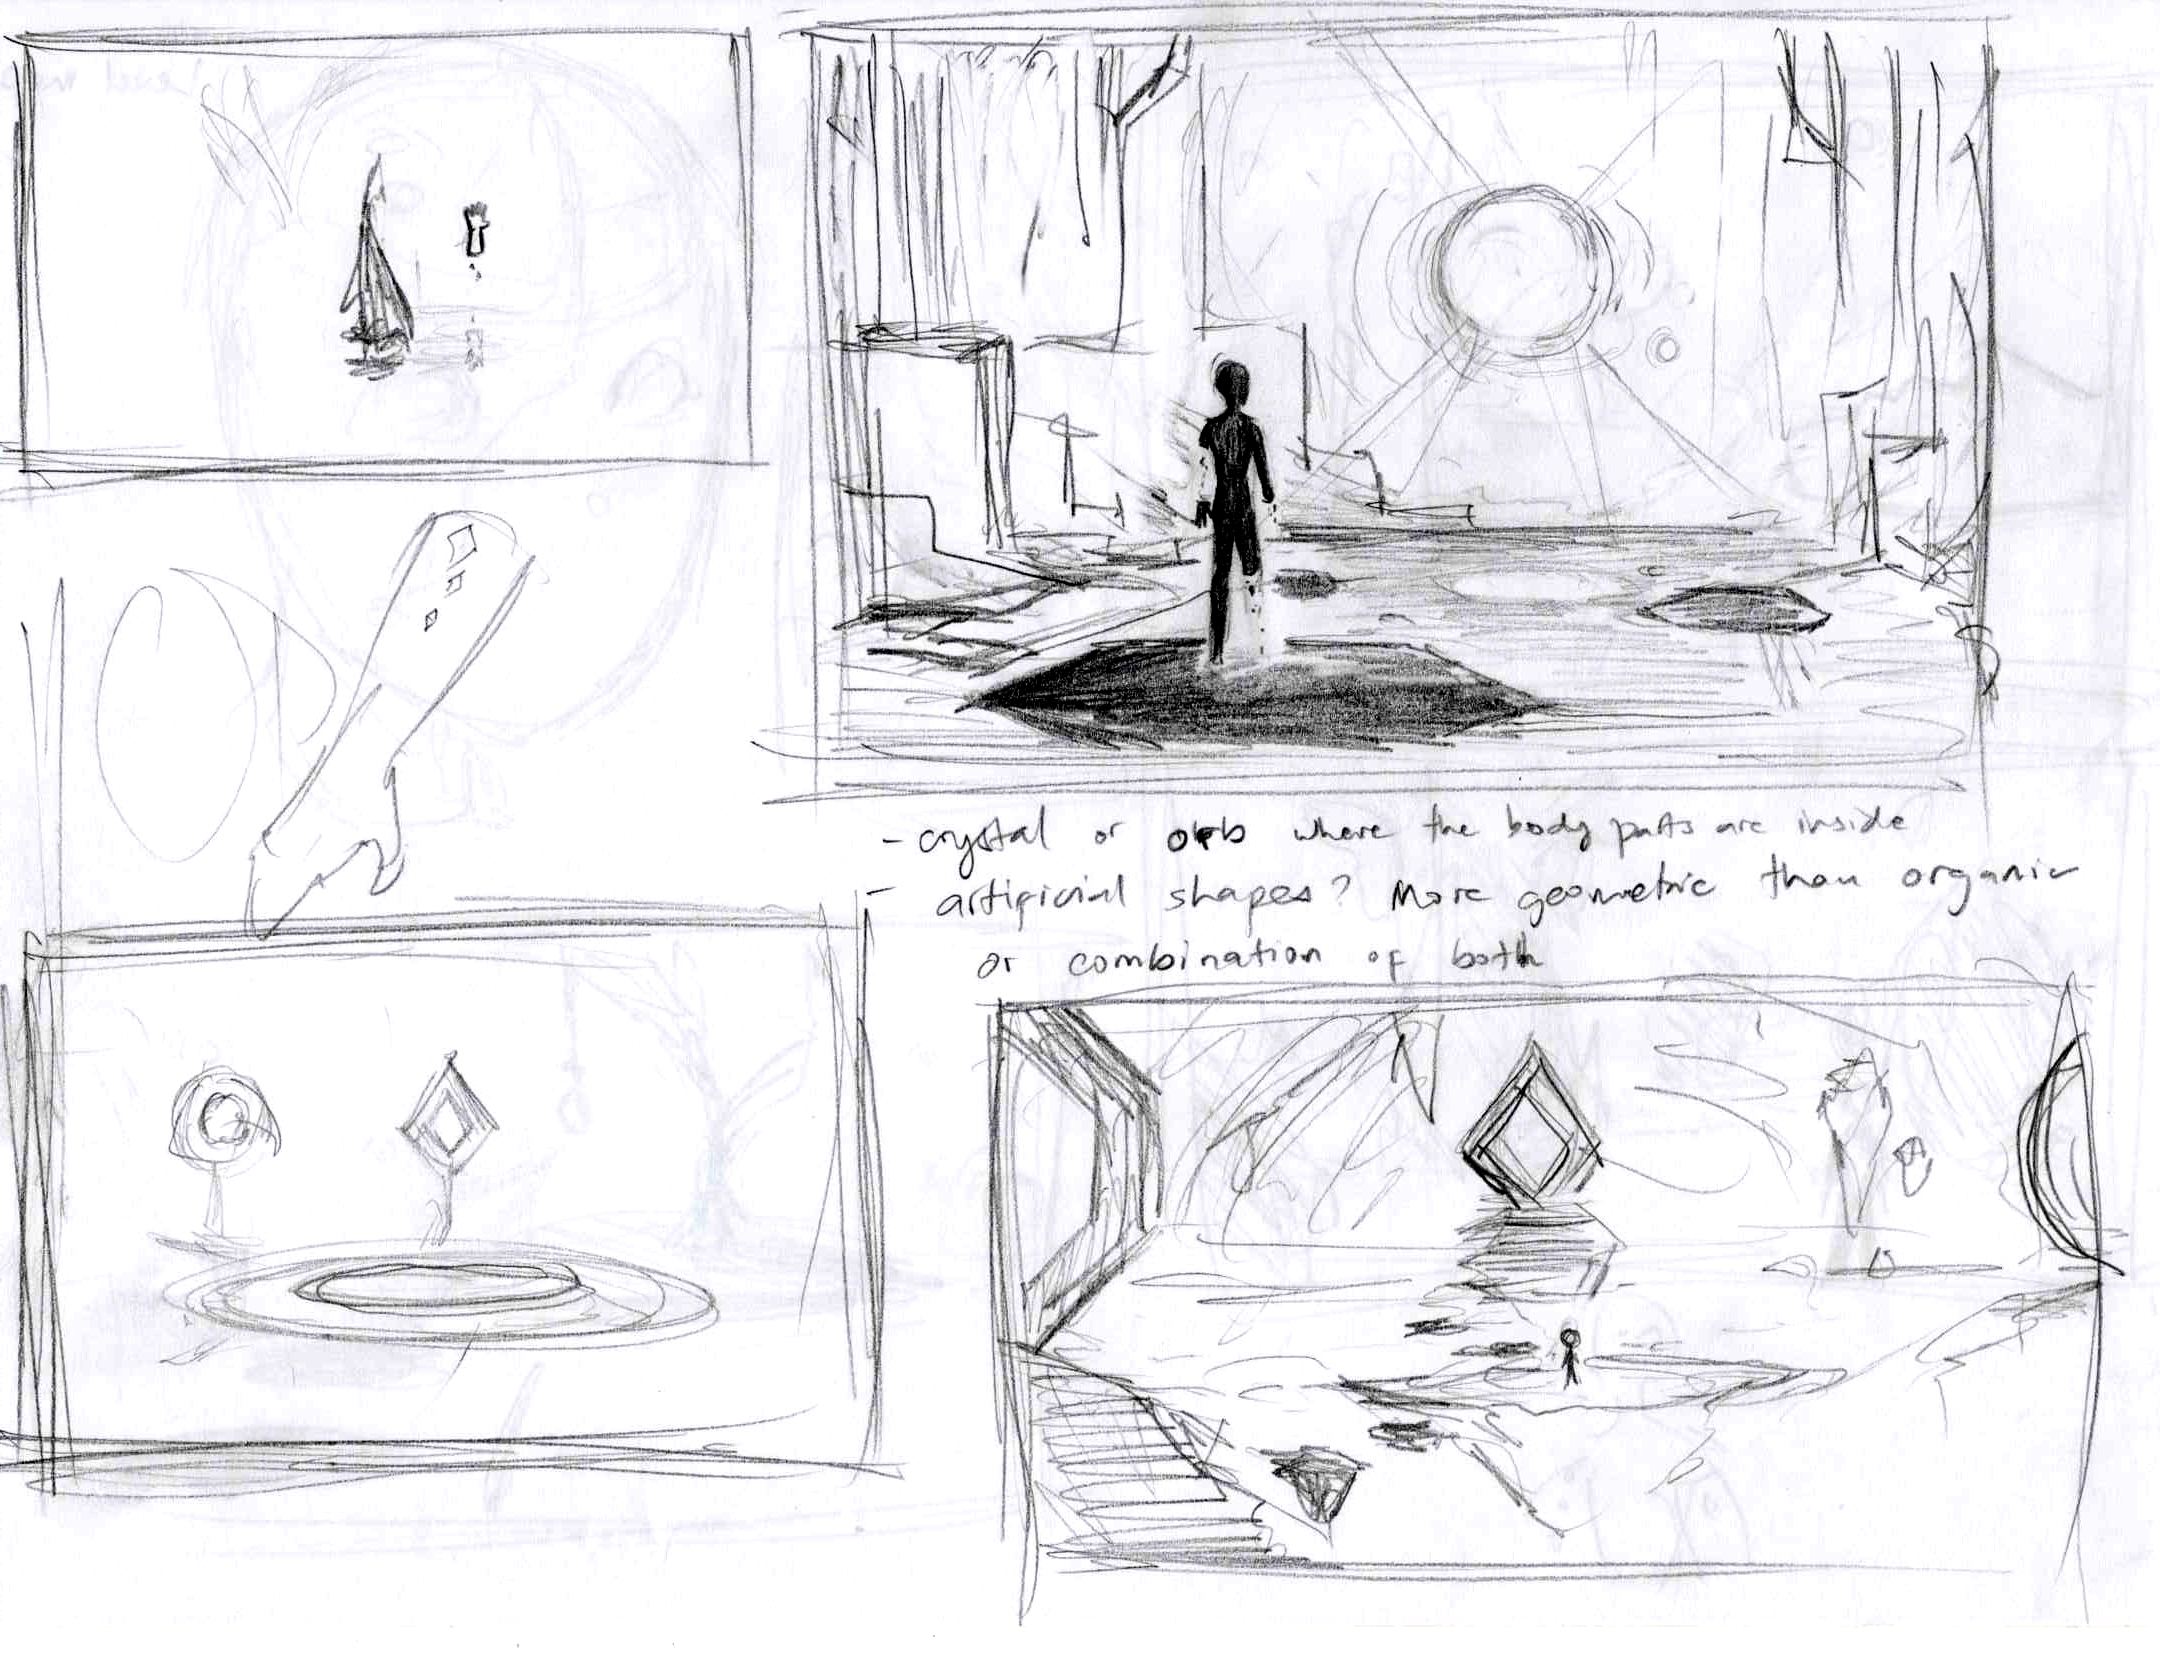 - crystal or orb where the body parts are inside
- artificial shapes? More geometric than organic
or combination of both